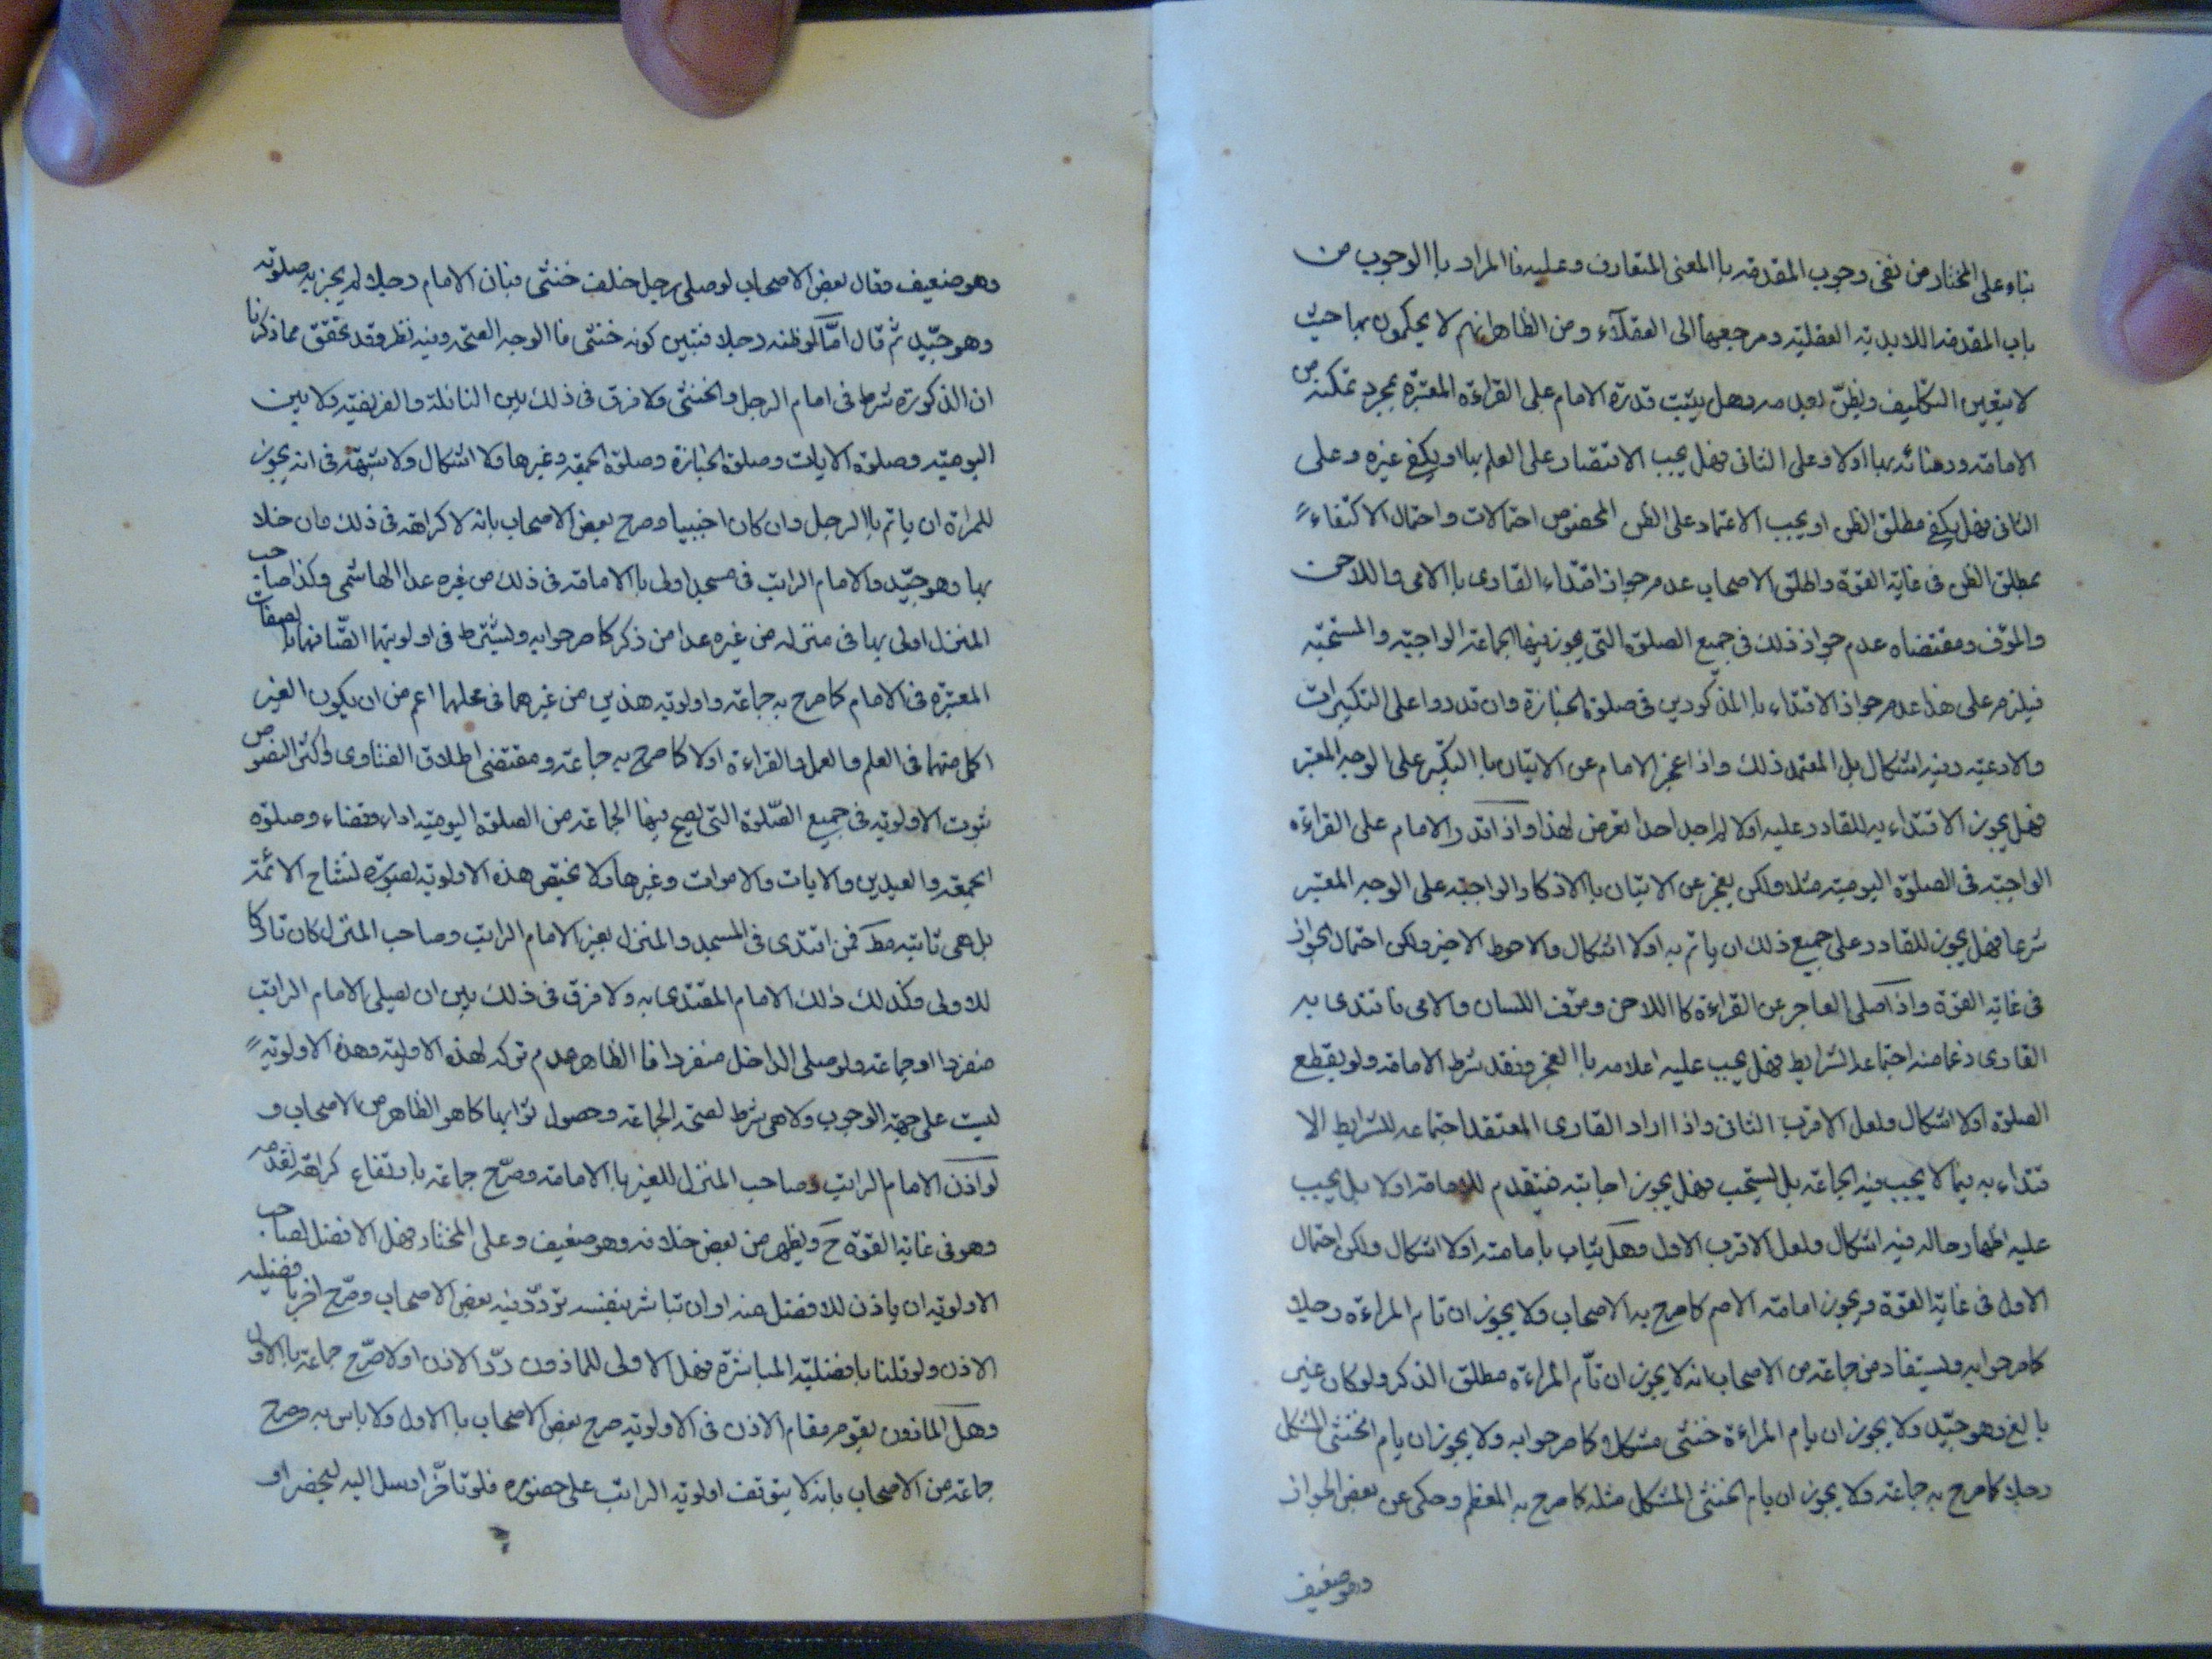 بناء على المختار من نفى وجوب المقدمه باالمعنى المتعارف وعليه فاالمراد باالوجوب من
باب المقدمه اللابديّه العقليّه ومرجعها الى العقلاء ومن الظاهر انهم لا يحكمون بها حيث
لا يتعين التكليف ويظنّ بعدمه وهل يثبت قدرة الامام على القراءة المعتبرة بمجرد تمكنه من
الامامة ورضائه بها اولا وعلى الثانى فهل يجب الاقتصار على العلم بها او يكفى غيره وعلى
الثانى فهل يكفى مطلق الظن او يجب الاعتماد على الظن المخصوص احتمالات واحتمال الاكتفاء
بمطلق الظن فى غاية القوة واطلق الاصحاب عدم جواز اقتداء القارى باالامى واللاحن
والمؤف ومقتضاه عدم جواز ذلك فى جميع الصلوة التى يجوز فيها الجماعة الواجبه والمستحبّه
فيلزم على هذا عدم جواز الاقتداء باالمذكورين فى صلوة الجنازة وان قدروا على التكبيرات
والادعيه وفيه اشكال بل المعتمد ذلك واذا عجز الامام عن الاتيان باالتكبير على الوجه المعتبر
فهل يجوز الاقتداء به للقادر عليه اولا لم اجد احدا تعرض لهذا واذا قدر الامام على القراءة
الواجبه فى الصلوة اليوميه مثلا ولكن يعجز عن الاتيان باالاذكار الواجبه على الوجه المعتبر
شرعا فهل يجوز للقادر على جميع ذلك ان ياتم به اولا اشكال والاحوط الاخير ولكن احتمال الجواز
فى غاية القوة واذا صلى العاجز عن القراءة كااللاحن ومؤف اللسان والامى فاقتدى به
القارى زعما منه اجتماعه الشرايط فهل يجب عليه اعلامه باالعجز وفقد شرط الامامه ولو بقطع
الصلوة اولا اشكال ولعل الاقرب الثانى واذا اراد القارى المعتقد اجتماعه للشرايط الا
قتداء به فيما لا يجب فيه الجماعة بل يستحب فهل يجوز اجابته فيتقدم للامامة اولا بل يجب
عليه اظهار حاله فيه اشكال ولعل الاقرب الاول وهل يثاب بامامته اولا اشكال ولكن احتمال
الاول فى غاية القوة ويجوز امامة الاصم كما صرح به الاصحاب ولا يجوز ان تام المراءة رجلا
كما صرحوا به ويستفاد من جماعة من الاصحاب بانه لا يجوز ان تام المراءة مطلق الذكر ولو كان غير
بالغ وهو جيّد ولا يجوز ان يام المراءة خنثى مشكلا وكما صرحوا به ولا يجوز ان يام الخنثى المشكل
رجلا كما صرح به جماعة ولا يجوز ان يام الخنثى المشكل مثله كما صرح به المعظم وحكى عن بعض الجواز
وهو ضعيف
وهو ضعيف وقال بعض الاصحاب لو صلى رجل خلف خنثى فبان الامام رجلا لم يجز به صلوته
وهو جيّد ثم قال امّا لو ظنه رجلا فتبين كونه خنثى فاالوجه الصحّه وفيه نظر وقد تحقق مما ذكرنا
ان الذكورة شرط فى امام الرجل والخنثى ولا فرق فى ذلك بين النافلة والفريضة ولا بين
اليوميّه وصلوة الايات وصلوة الجنازة وصلوة الجمعه وغيرها ولا اشكال ولا شبهة فى انه يجوز
للمراة ان ياتم باالرجل وان كان اجنبيا وصرح بعض الاصحاب بانه لا كراهة فى ذلك وان خلا
بها وهو جيّد والامام الراتب فى مسجد اولى باالامامة فى ذلك من غيره عدا الهاشمى وكذا صاحب
المنزل اولى بها فى منزله من غيره عدا من ذكر كما صرحوا به ويشترط فى اولويتهما اتّصافهما بالصفات
المعتبرة فى الامام كما صرح به جماعة واولويّه هذين من غيرهما فى محلهما اعم من ان يكون الغير
اكمل منهما فى العلم والعمل والقراءة اولا كما صرح به جماعة ومقتضى اطلاق الفتاوى واكثر النصوص
ثبوت الاولويّه فى جميع الصّلوة التى يصح فيها الجماعة من الصلوة اليوميّه اداء وقضاء وصلوة
الجمعه والعيدين والايات والاموات وغيرها ولا يختص هذه الاولويّه بصورة تشاح الائمّة
بل هى ثابته مط فمن اقتدى فى المسجد والمنزل بغير الامام الراتب وصاحب المنزل كان تاركا
للاولى وكذلك ذلك الامام المقتدى به ولا فرق فى ذلك بين ان يصلى الامام الراتب
منفردا او جماعة ولو صلى الداخل منفردا فاالظاهر عدم تركه لهذه الاولويّه وهذه الاولويّه
ليست على جهة الوجوب ولا هى شرط لصحة الجماعة وحصول ثوابها كما هو الظاهر من الاصحاب و
لو اذن الامام الراتب وصاحب المنزل للغير باالامامة وصرّح جماعة بارتفاع كراهة تقدمه
وهو فى غاية القوة ح ويظهر من بعض خلافه وهو ضعيف وعلى المختار فهل الافضل لصاحب
الاولويّه ان ياذن للافضل منه او ان تباشر بنفسه تردّد فيه بعض الاصحاب وصرّح اخر بافضليه
الاذن ولو قلنا بافضليّة المباشرة فهل الاولى للماذون ردّ الاذن اولا صرّح جماعة باالاول
وهل الماذون يقوم مقام الاذن فى الاولويّه صرح بعض الاصحاب باالاول ولا باس به وصرح
جماعة من الاصحاب بانه لا يتوقف اولوية الراتب على حضوره فلو تاخّر ارسل اليه ليحضر او